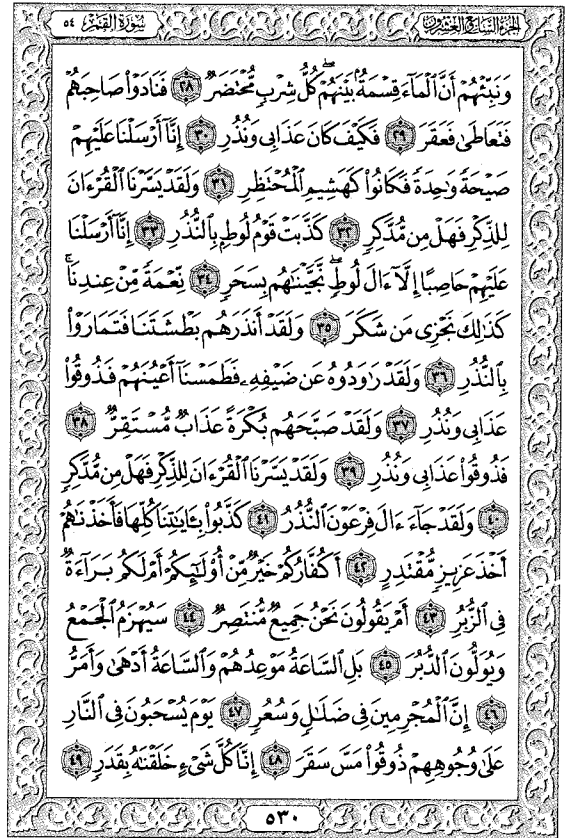 الجزء السابع والعشرون
سورة القمر ٥٤
وَنَبِّئْهُمْ أَنَّ ٱلْمَآءَ قِسْمَةٌۢ بَيْنَهُمْ ۖ كُلُّ شِرْبٍ مُّحْتَضَرٌ ٢٨ فَنَادَوْا۟ صَاحِبَهُمْ
فَتَعَاطَىٰ فَعَقَرَ ٢٩ فَكَيْفَ كَانَ عَذَابِى وَنُذُرِ ٣٠ إِنَّآ أَرْسَلْنَا عَلَيْهِمْ
صَيْحَةً وَٰحِدَةً فَكَانُوا۟ كَهَشِيمِ ٱلْمُحْتَظِرِ ٣١ وَلَقَدْ يَسَّرْنَا ٱلْقُرْءَانَ
لِلذِّكْرِ فَهَلْ مِن مُّدَّكِرٍ ٣٢ كَذَّبَتْ قَوْمُ لُوطٍۭ بِٱلنُّذُرِ ٣٣ إِنَّآ أَرْسَلْنَا
عَلَيْهِمْ حَاصِبًا إِلَّآ ءَالَ لُوطٍ ۖ نَّجَّيْنَٰهُم بِسَحَرٍ ٣٤ نِّعْمَةً مِّنْ عِندِنَا ۚ
كَذَٰلِكَ نَجْزِى مَن شَكَرَ ٣٥ وَلَقَدْ أَنذَرَهُم بَطْشَتَنَا فَتَمَارَوْا۟
بِٱلنُّذُرِ ٣٦ وَلَقَدْ رَٰوَدُوهُ عَن ضَيْفِهِۦ فَطَمَسْنَآ أَعْيُنَهُمْ فَذُوقُوا۟
عَذَابِى وَنُذُرِ ٣٧ وَلَقَدْ صَبَّحَهُم بُكْرَةً عَذَابٌ مُّسْتَقِرٌّ ٣٨
فَذُوقُوا۟ عَذَابِى وَنُذُرِ ٣٩ وَلَقَدْ يَسَّرْنَا ٱلْقُرْءَانَ لِلذِّكْرِ فَهَلْ مِن مُّدَّكِرٍ
٤٠ وَلَقَدْ جَآءَ ءَالَ فِرْعَوْنَ ٱلنُّذُرُ ٤١ كَذَّبُوا۟ بِـَٔايَٰتِنَا كُلِّهَا فَأَخَذْنَٰهُمْ
أَخْذَ عَزِيزٍ مُّقْتَدِرٍ ٤٢ أَكُفَّارُكُمْ خَيْرٌ مِّنْ أُو۟لَٰٓئِكُمْ أَمْ لَكُم بَرَآءَةٌ
فِى ٱلزُّبُرِ ٤٣ أَمْ يَقُولُونَ نَحْنُ جَمِيعٌ مُّنتَصِرٌ ٤٤ سَيُهْزَمُ ٱلْجَمْعُ
وَيُوَلُّونَ ٱلدُّبُرَ ٤٥ بَلِ ٱلسَّاعَةُ مَوْعِدُهُمْ وَٱلسَّاعَةُ أَدْهَىٰ وَأَمَرُّ
٤٦ إِنَّ ٱلْمُجْرِمِينَ فِى ضَلَٰلٍ وَسُعُرٍ ٤٧ يَوْمَ يُسْحَبُونَ فِى ٱلنَّارِ
عَلَىٰ وُجُوهِهِمْ ذُوقُوا۟ مَسَّ سَقَرَ ٤٨ إِنَّا كُلَّ شَىْءٍ خَلَقْنَٰهُ بِقَدَرٍ ٤٩
٥٣٠